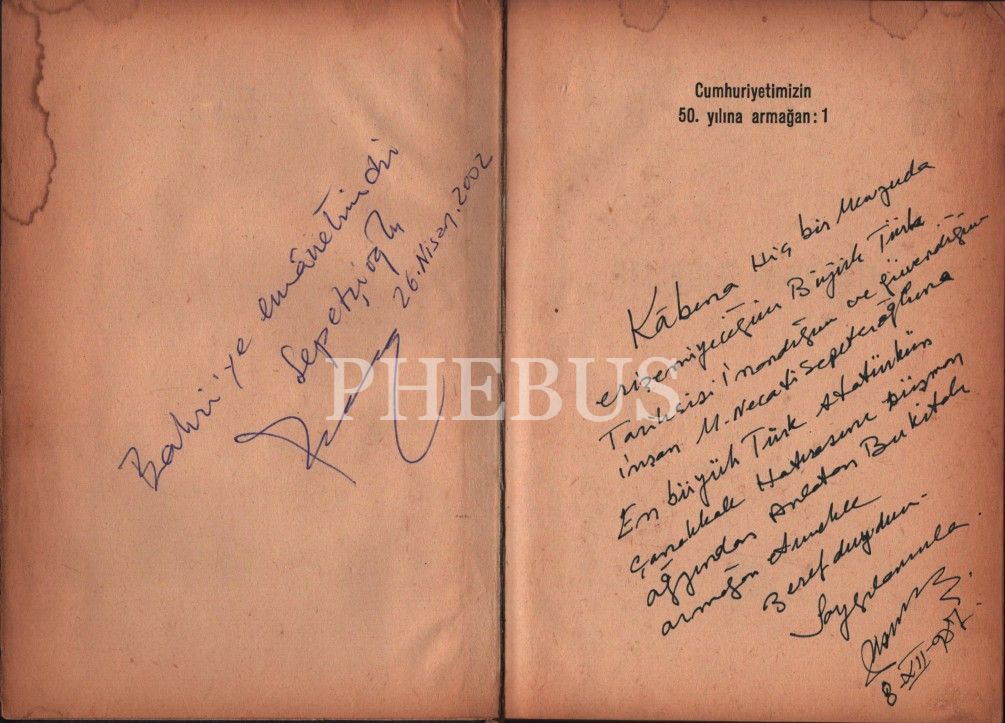 Bahri'ye emânetimdi
Sepetçioğlu
26.Nisan.2002
PHEBUS
Cumhuriyetimizin
50. yılına armağan: 1
Kâbına Hiç bir Mevzuda
erişemiyeceğim Büyük Türk
Tarihçisi İnandığım ve güvendiğim
insan M. Necati Sepetcioğluna
En büyük Türk Atatürkün
Çanakkale Hatırasını Düşman
ağzından Anlatan Bu kitabı
armağan Etmekle
Şeref duydum.
Saygılarımla.
8-XII-